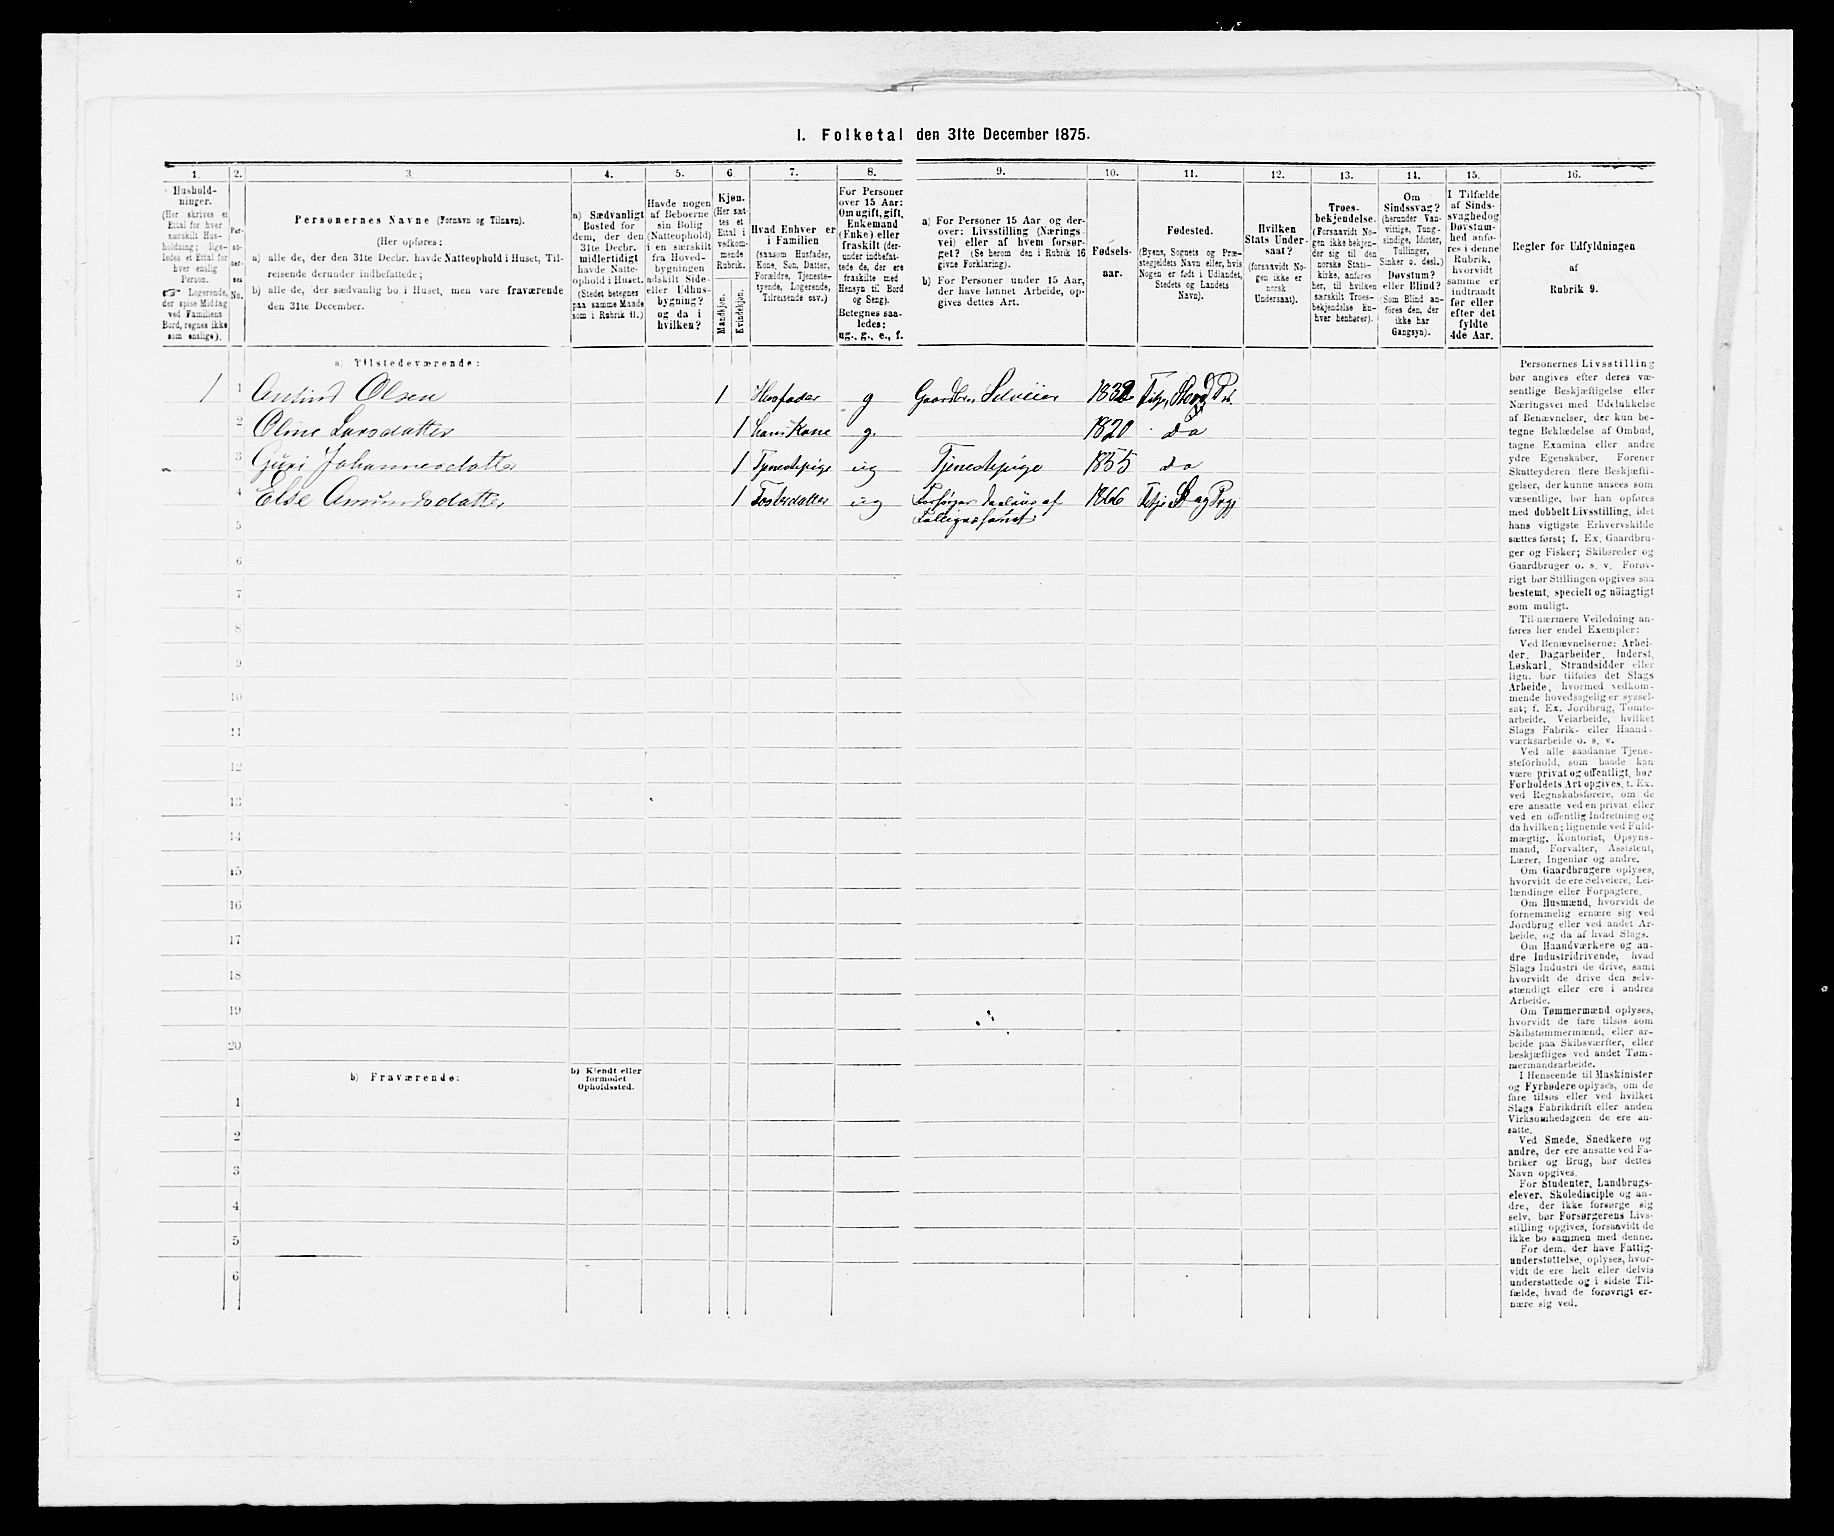 I. Folketal den 31te December 1875.
1.
2.
3.
4.
5.
6
7.
8.
9.
10.
11.
12.
13.
14.
15.
16.
Hushold-
ninger.
(Her skrives et
Ettal for hver
særskilt Hus-
holdning; lige-
ledes et Ettal for
hver enslig
Person.
☞ Logerende,
der spise Middag
ved Familiens
Bord, regnes ikke
som enslige).
Per-
so-
ner-
nes
No.
Personernes Navne (Fornavn og Tilnavn).
(Her opføres:
a) alle de, der den 31te Decbr. havde Natteophold i Huset, Til-
reisende derunder indbefattede;
b) alle de, der sædvanlig bo i Huset, men vare fraværende
den 31te December.
a) Sædvanligt
Bosted for
dem, der den
31te Decbr.
midlertidigt
havde Natte-
ophold i Huset.
(Stedet betegnes
paa samme Maade
som i Rubrik 11.)
Havde nogen
af Beboerne
sin Bolig
(Natteophold)
i en særskilt
fra Hoved-
bygningen
adskilt Side-
eller Udhus-
bygning?
og da i
hvilken?
Kjøn.
(Her sæt-
tes et
Ettal i
vedkom-
mende
Rubrik.
Mandkjøn.
Kvindekjøn.
Hvad Enhver er
i Familien
(saasom Husfader,
Kone, Søn, Datter,
Forældre, Tjeneste-
tyende, Logerende,
Tilreisende osv.)
For Personer
over 15 Aar:
Om ugift, gift,
Enkemand
(Enke) eller
fraskilt (der-
under indbefat-
tede de, der ere
fraskilte med
Hensyn til Bord
og Seng).
Betegnes saa-
ledes:
ug., g., e., f.
a) For Personer 15 Aar og der-
over: Livsstilling (Nærings-
vei) eller af hvem forsør-
get? (Se herom den i Rubrik 16
givne Forklaring).
b) For Personer under 15 Aar,
der have lønnet Arbeide, op-
gives dettes Art.
Fødsels-
aar.
Fødested.
(Byens, Sognets og Præ-
stegjeldets Navn eller, hvis
Nogen er født i Udlandet,
Stedets og Landets
Navn).
Hvilken
Stats Under-
saat?
(forsaavidt No-
gen ikke er
norsk
Undersaat).
Troes-
bekjendelse.
(Forsaavidt No-
gen ikke bekjen-
der sig til den
norske Stats-
kirke, anføres
her, til hvilken
særskilt Troes-
bekjendelse En-
hver henhører).
Om
Sindssvag?
(herunder Van-
vittige, Tung-
sindige, Idioter,
Tullinger,
Sinker o. desl.)
Døvstum?
eller Blind?
(Som Blind an-
føres den, der
ikke har
Gangsyn).
I Tilfælde
af Sinds-
svaghed og
Døvstum-
hed anfø-
res i denne
Rubrik,
hvorvidt
samme er
indtraadt
før eller
efter det
fyldte
4de Aar.
Regler for Udfyldningen
af
Rubrik 9.
a. Tilstedeværende:
1 1 Olsen 1 Husfader g Gaardbr. Selveier 1832
2 Oline Larsdatter 1 hans Kone g. 1820 do
3 Guri Johannesdatter 1 Tjenestepige ug Tjenestepige 1855 do
4 Else Amundsdatter 1 Fosterdatter ug 1866
5
6
7
8
9
10
11
12
13
14
15
16
17
18
19
20
b) Fraværende:
b) Kjendt eller
formodet
Opholdssted.
1
2
3
4
5
6
Personernes Livsstilling
bør angives efter deres væ-
sentlige Beskjæftigelse eller
Næringsvei med Udelukkelse
af Benævnelser, der kun be-
tegne Beklædelse af Ombud,
tagne Examina eller andre
ydre Egenskaber. Forener
Skatteyderen flere Beskjæfti-
gelser, der kunne ansees som
væsentlige, bør han opføres
med dobbelt Livsstilling, idet
hans vigtigste Erhvervskilde
sættes først; f. Ex. Gaardbru-
ger og Fisker; Skibsreder og
Gaardbruger o. s. v. Forøv-
rigt bør Stillingen opgives saa
bestemt, specielt og nöiagtigt
som muligt.
Til nærmere Veiledning an-
føres her endel Exempler:
Ved Benævnelserne: Arbei-
der, Dagarbeider, Inderst,
Løskarl, Strandsidder eller
lign. bør tilføies det Slags
Arbeide, hvormed vedkom-
mende hovedsagelig er syssel-
sat; f. Ex. Jordbrug, Tomte-
arbeide, Veiarbeide, hvilket
Slags Fabrik- eller Haand-
værksarbeide o. s. v.
Ved alle saadanne Tjene-
steforhold, som baade kan
være privat og offentligt, bør
Forholdets Art opgives, f. Ex.
ved Regnskabsførere, om de
ere ansatte ved en privat eller
ved en offentlig Indretning og
da hvilken; lignende ved Fuld-
mægtig, Kontorist, Opsyns-
mand, Forvalter, Assistent,
Lærer, Ingeniør og andre.
Om Gaardbrugere oplyses,
hvorvidt de ere Selveiere, Lei-
lændinge eller Forpagtere.
Om Husmænd, hvorvidt de
fornemmelig ernære sig ved
Jordbrug eller ved andet Ar-
beide, og da af hvad Slags.
Om Haandværkere og an-
dre Industridrivende, hvad
Slags Industri de drive, samt
hvorvidt de drive den selv-
stændigt eller ere i andres
Arbeide.
Om Tømmermænd oplyses,
hvorvidt de fare tilsøs som
Skibstømmermænd, eller ar-
beide paa Skibsværfter, eller
beskjæftiges ved andet Tøm-
mermandsarbeide.
I Henseende til Maskinister
og Fyrbødere oplyses, om de
fare tilsøs eller ved hvilket
Slags Fabrikdrift eller anden
Virksomhedsgren de ere an-
satte.
Ved Smede, Snedkere og
andre, der ere ansatte ved Fa-
briker og Brug, bør dettes
Navn opgives.
For Studenter, Landbrugs-
elever, Skoledisciple og an-
dre, der ikke forsørge sig
selv, bør Forsørgerens Livs-
stilling opgives, forsaavidt de
ikke bo sammen med denne.
For dem, der have Fattig-
understøttelse, oplyses, hvor-
vidt de ere helt eller delvis
understøttede og i sidste Til-
fælde, hvad de forøvrigt er-
nære sig ved.